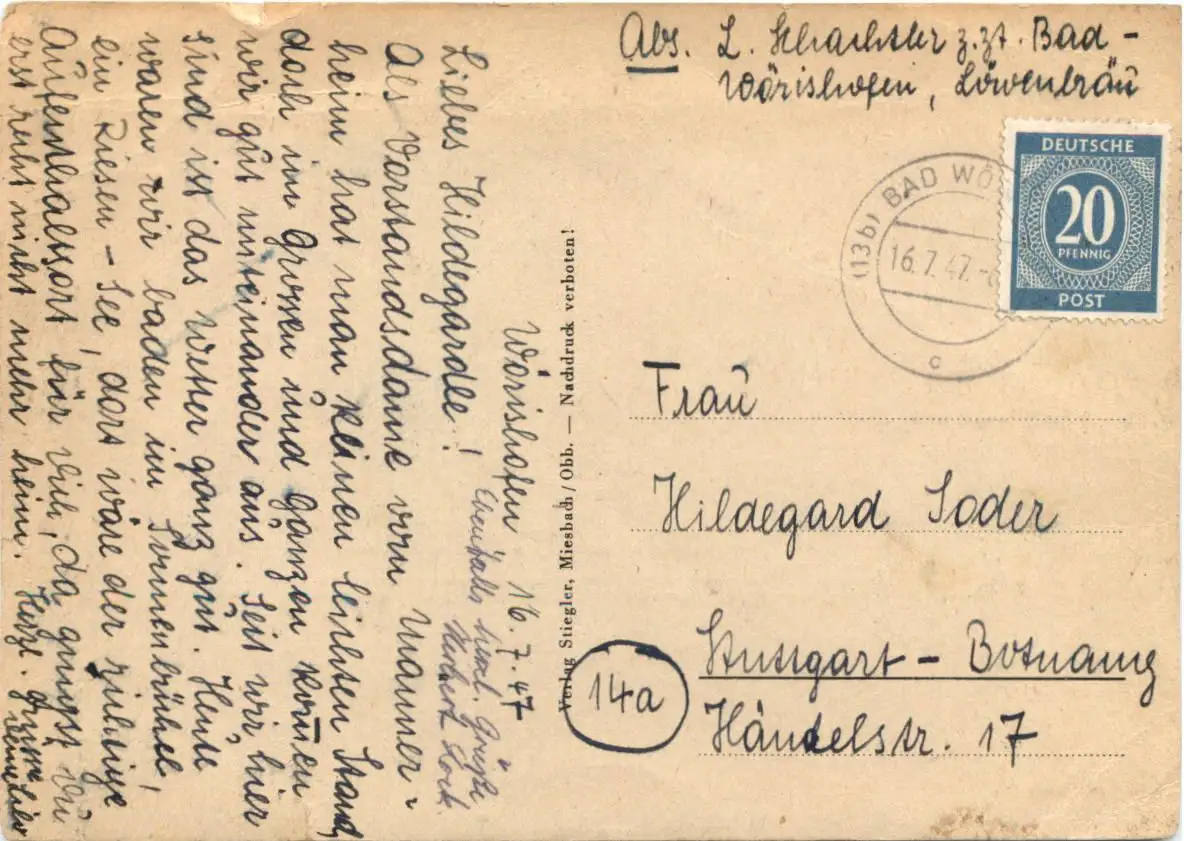 Abs. L. Schachtler z.Zt. Bad -
Wörishofen, Löwenbräu
DEUTSCHE
20
PFENNIG
POST
(13b) BAD WÖ
16.7.47.-
c
Frau
Hildegard Soder
Stuttgart - Botnang
Händelstr. 17
14a
Verlag Stiegler, Miesbach/Obb. — Nachdruck verboten!
Wörishofen 16.7.47
Liebes Hildegardle!
Als Vorstandsdame vom Männer-
heim hat man keinen leichten Stand,
doch im Grossen und Ganzen kom̄en
wir gut miteinander aus. Seit wir hier
sind ist das Wetter ganz gut. Heute
waren wir baden im Sonnenbühel,
ein Riesen-See, dort wäre der richtige
Aufenthaltsort für Dich, da gingst Du
erst recht nicht mehr heim. Herzl. Grüsse
Deine
Ebenfalls herzl. Grüße
Herbert